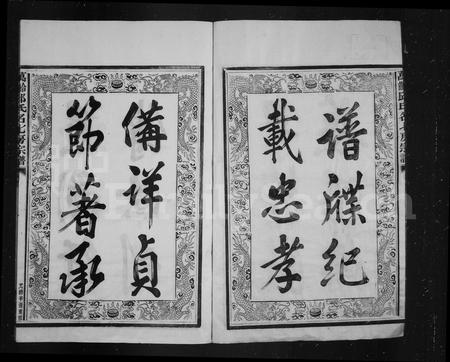 譜牒紀
載忠孝
備詳貞
節著承